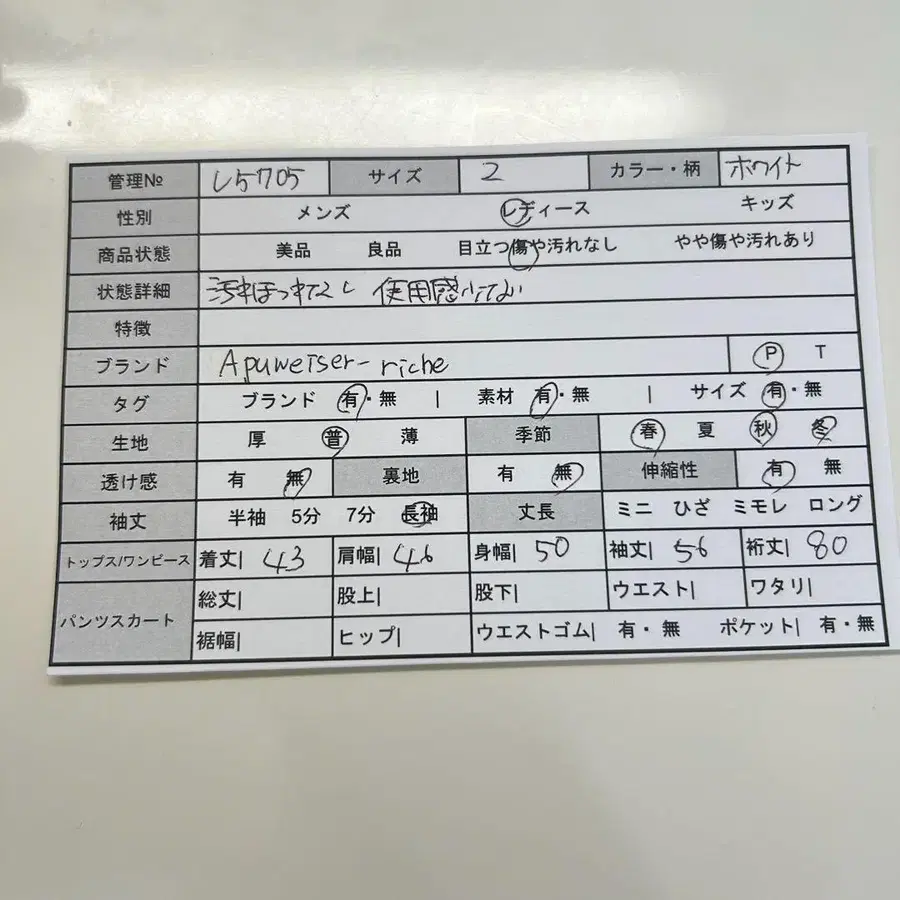 管理№ L5705 サイズ 2 カラー・柄 ホワイト
性別 メンズ レディース キッズ
商品状態 美品 良品 目立つ傷や汚れなし やや傷や汚れあり
状態詳細 汚れほつれなし 使用感少ない
特徴
ブランド Apuweiser-riche P T
タグ ブランド 有・無 | 素材 有・無 | サイズ 有・無
生地 厚 普 薄 季節 春 夏 秋 冬
透け感 有 無 裏地 有 無 伸縮性 有 無
袖丈 半袖 5分 7分 長袖 丈長 ミニ ひざ ミモレ ロング
トップス/ワンピース 着丈| 43 肩幅| 46 身幅| 50 袖丈| 56 裄丈| 80
パンツスカート 総丈| 股上| 股下| ウエスト| ワタリ|
裾幅| ヒップ| ウエストゴム| 有・無 ポケット| 有・無